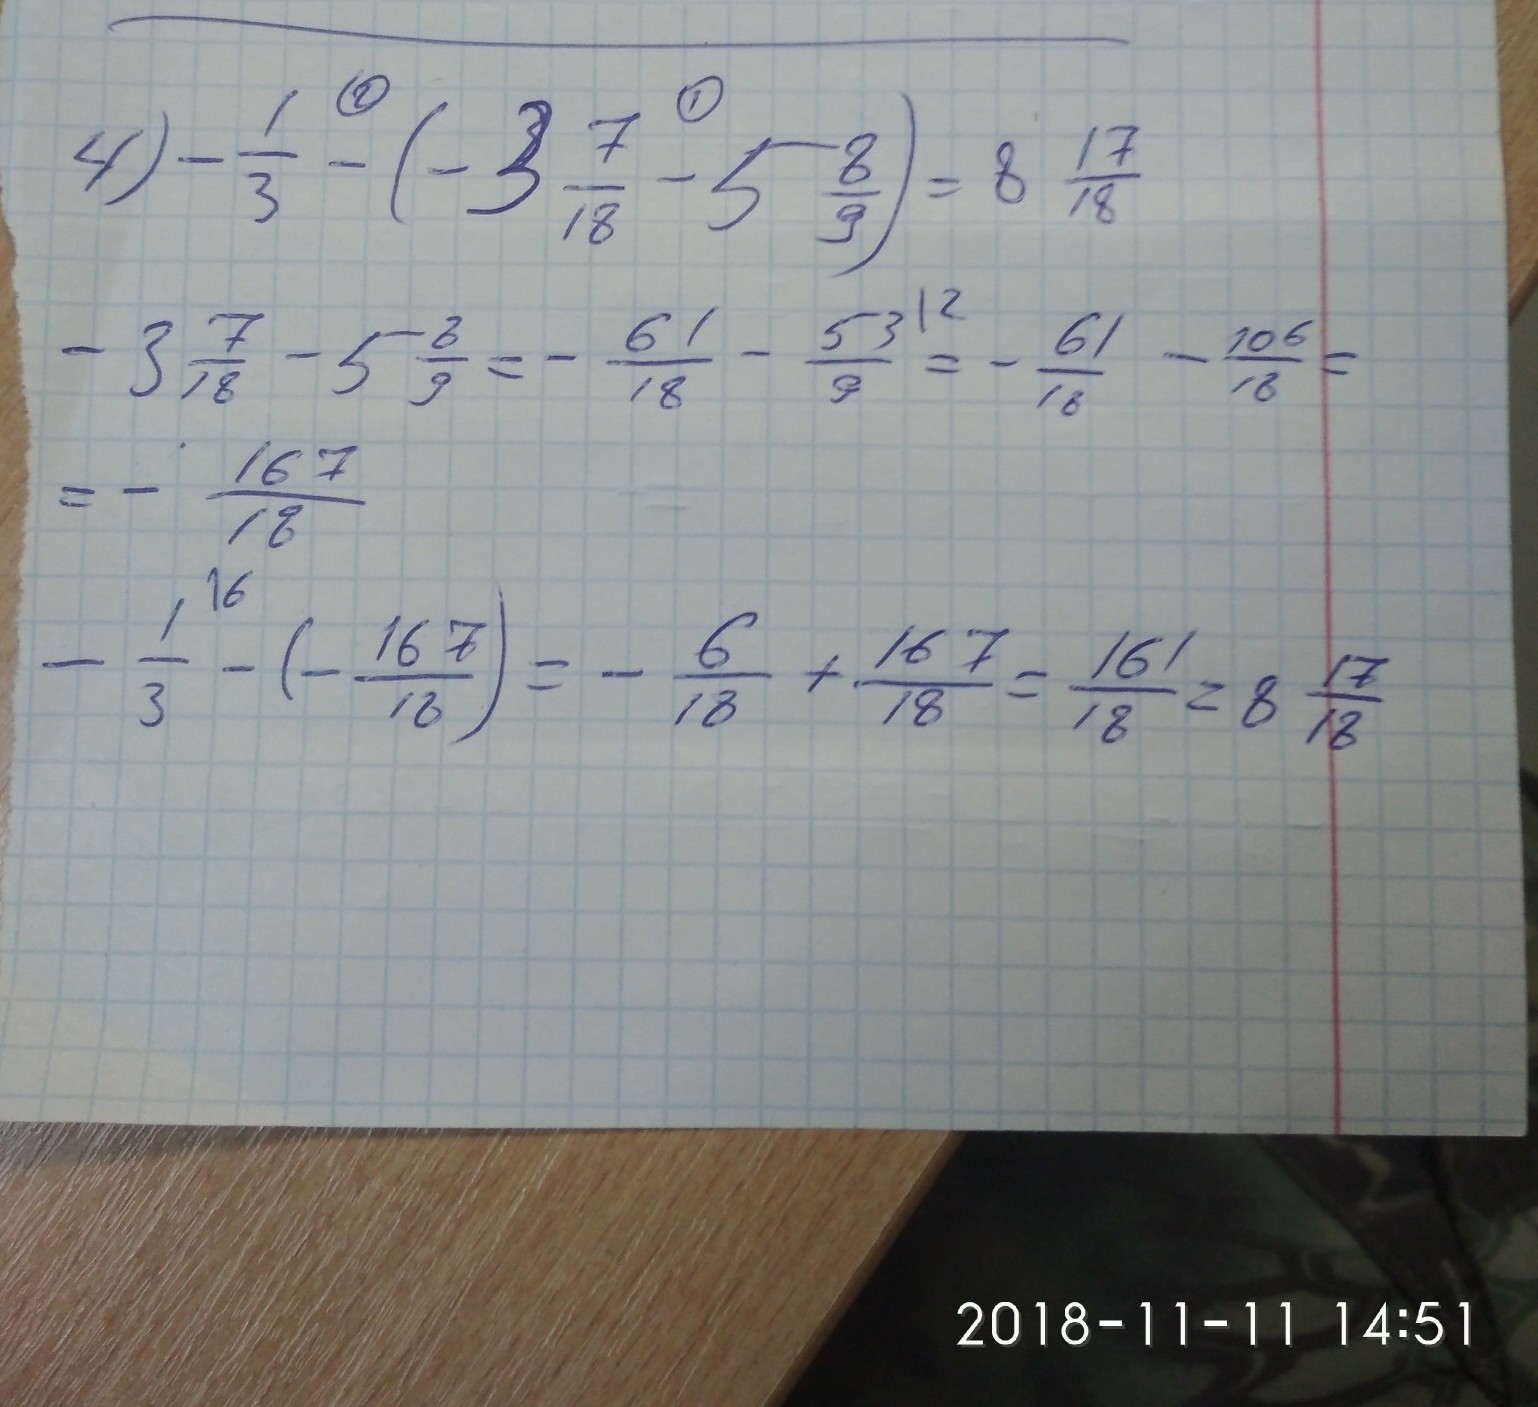 4) - 1/3 ② - (- 3 7/18 ① - 5 8/9) = 8 17/18
- 3 7/18 - 5 8/9 = - 61/18 - 53/9 |2 = - 61/18 - 106/18 =
= - 167/18
- 1/3 |6 - (- 167/18) = - 6/18 + 167/18 = 161/18 = 8 17/18
2018-11-11 14:51